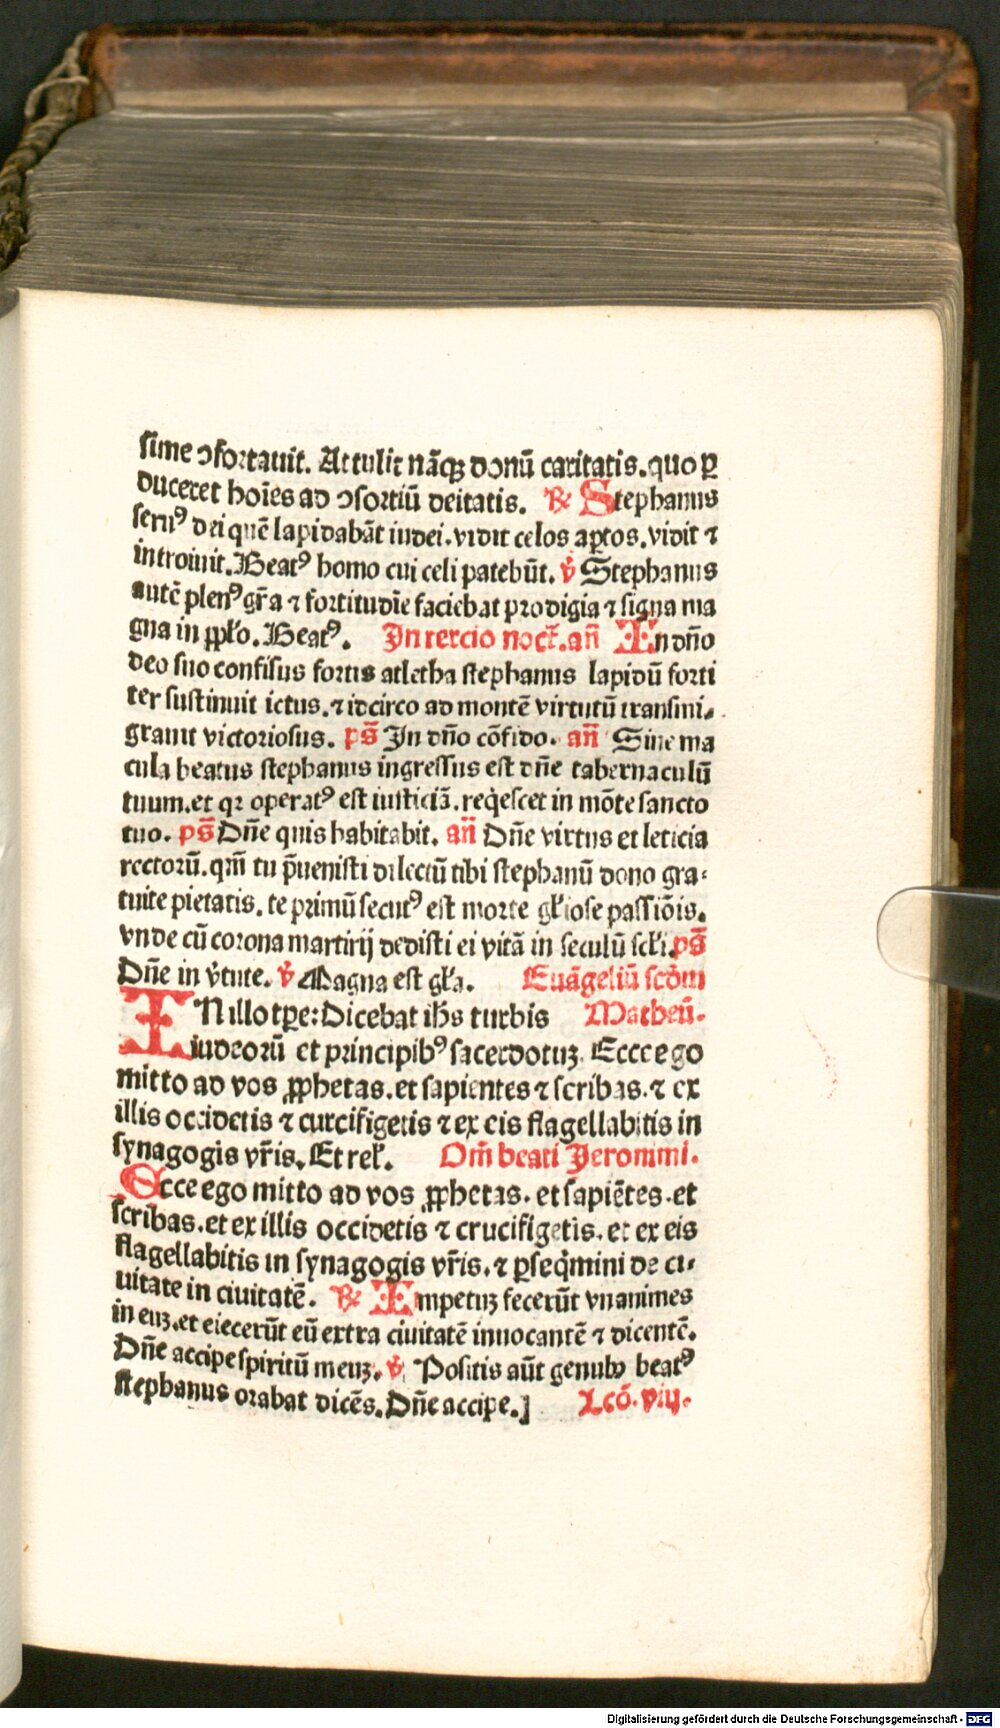 sime ɔfortauit. Attulit nãqꝫ donũ caritatis. quo ꝑ
duceret hoĩes ad ɔsortiũ deitatis. ℟ Stephanus
seruꝰ dei quẽ lapidabãt iudei. vidit celos aꝑtos. vidit ⁊
introiuit. Beatꝰ homo cui celi patebũt. ℣ Stephanus
autẽ plenꝰ gr̃a ⁊ fortitudĩe faciebat prodigia ⁊ signa ma
gna in ꝓpl̃o. Beatꝰ. In tercio noct̃. añ In dño
deo suo confisus fortis atletha stephanus lapidũ forti
ter sustinuit ictus. ⁊ idcirco ad montẽ virtutũ transmi⸗
grauit victoriosus. ps̃ In dño cõfido. añ Sine ma
cula beatus stephanus ingressus est dñe tabernaculũ
tuum. et qꝛ operatꝰ est iusticiã. reqͥescet in mõte sancto
tuo. ps̃ Dñe quis habitabit. añ Dñe virtus et leticia
rectorũ. qm̃ tu p̃uenisti dilectũ tibi stephanũ dono gra⸗
tuite pietatis. te primũ secutꝰ est morte gl̃iose passiõis.
vnde cũ corona martirij dedisti ei vitã in seculũ scl̃i. ps̃
Dñe in ṽtute. ℣ Magna est gl̃a. Euãgeliũ scd̃m
IN illo tꝑe: Dicebat ih̃s turbis Matheũ.
iudeorũ et principibꝰ sacerdotuꝫ. Ecce ego
mitto ad vos ꝓphetas. et sapientes ⁊ scribas. ⁊ ex
illis occidetis ⁊ curcifigetis ⁊ ex eis flagellabitis in
synagogis vr̃is. Et rel̃. Om̃ beati Jeronimi.
Ecce ego mitto ad vos ꝓphetas. et sapiẽtes. et
scribas. et ex illis occidetis ⁊ crucifigetis. et ex eis
flagellabitis in synagogis vr̃is. ⁊ ꝑseqͥmini de ci⸗
uitate in ciuitatẽ. ℟ Impetuꝫ fecerũt vnanimes
in euꝫ. et eiecerũt eũ extra ciuitatẽ inuocantẽ ⁊ dicentẽ.
Dñe accipe spiritũ meuꝫ. ℣ Positis aũt genibꝰ beatꝰ
stephanus orabat dicẽs. Dñe accipe.] Lcõ. viij.
Digitalisierung gefördert durch die Deutsche Forschungsgemeinschaft - DFG